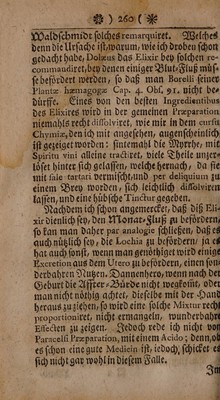 ) 260 (
Waldschmidt solches remarquiret. Welches
denn die Ursache ist, warum, wie ich droben schon
gedacht habe, Dolæus das Elixir bey solchen re-
commandiret, bey denen einiger Blut-Fluß müs-
se befördert werden, so daß man Borelli seiner
Plantæ hæmagogæ Cap. 4. Obs. 91. nicht be-
dürffe. Eines von den besten Ingredientibus
des Elixires wird in der gemeinen Præparation
niemahls recht dissolviret, wie mir in dem cursu
Chymiæ, den ich mit angesehen, augenscheinlich
ist gezeiget worden: sintemahl die Myrrhe, mit
Spiritu vini alleine tractiret, viele Theile unter-
löset hinter sich gelassen, welche hernach, da sie
mit sale tartari dermischt, und per deliquium zu
einem Brey worden, sich leichtlich dissolviren
lassen, und eine hübsche Tinctur gegeben.
Nachdem ich schon angemercket, daß diß Eli-
xir dienlich sey, den Monats-Fluß zu befördern,
so kan man daher par analogie schliessen, daß es
auch nützlich sey, die Lochia zu befördern, ja es
hat auch sonst, wenn man genöthiget wird einige
Excretion aus dem Utero zu befördern, einen son-
derbahren Nutzen. Dannenhero, wenn nach der
Geburt die Affter-Bürde nicht wegkömt, oder
man nicht nöthig achtet, dieselbe mit der Hand
heraus zu ziehen, so wird eine solche Mixtur recht
proportioniret, nicht ermangeln, wunderbahre
Effecten zu zeigen. Jedoch rede ich nicht von
Paracelsi Præparation, mit einem Acido; denn, ob
es schon eine gute Medicin ist, jedoch, schicket es
sich nicht gar wohl in diesem Falle.
Im